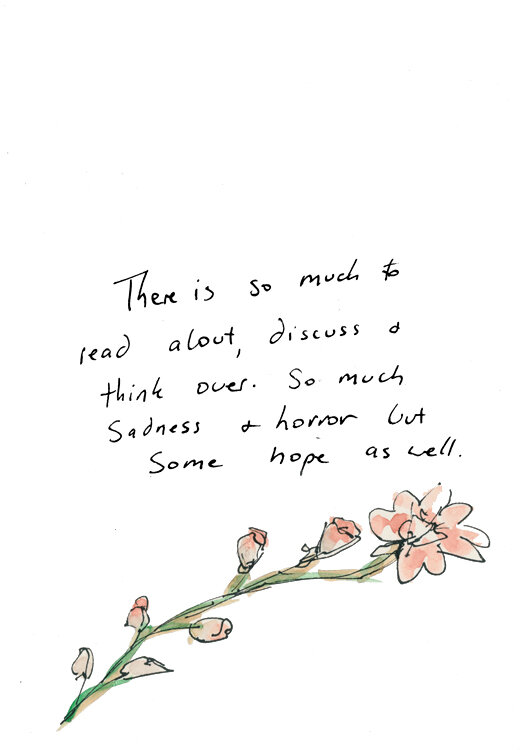 There is so much to
read about, discuss &
think over. So much
Sadness & horror but
Some hope as well.